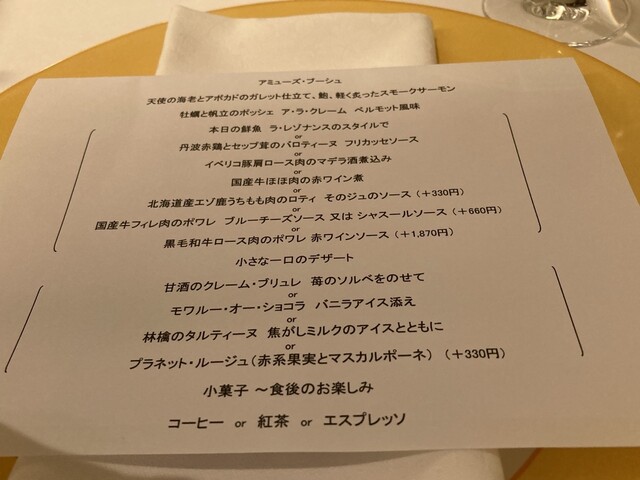 アミューズ・ブーシュ
天使の海老とアボカドのガレット仕立て、鮑、軽く炙ったスモークサーモン
牡蠣と帆立のポッシェ ア・ラ・クレーム ベルモット風味
本日の鮮魚 ラ・レゾナンスのスタイルで
or
丹波赤鶏とセップ茸のバロティーヌ フリカッセソース
or
イベリコ豚肩ロース肉のマデラ酒煮込み
or
国産牛ほほ肉の赤ワイン煮
or
北海道産エゾ鹿うちもも肉のロティ そのジュのソース （＋330円）
or
国産牛フィレ肉のポワレ ブルーチーズソース 又は シャスールソース （＋660円）
or
黒毛和牛ロース肉のポワレ 赤ワインソース （＋1,870円）
小さな一口のデザート
甘酒のクレーム・ブリュレ 苺のソルベをのせて
or
モワルー・オー・ショコラ バニラアイス添え
or
林檎のタルティーヌ 焦がしミルクのアイスとともに
or
プラネット・ルージュ（赤系果実とマスカルポーネ） （＋330円）
小菓子 ～食後のお楽しみ
コーヒー or 紅茶 or エスプレッソ